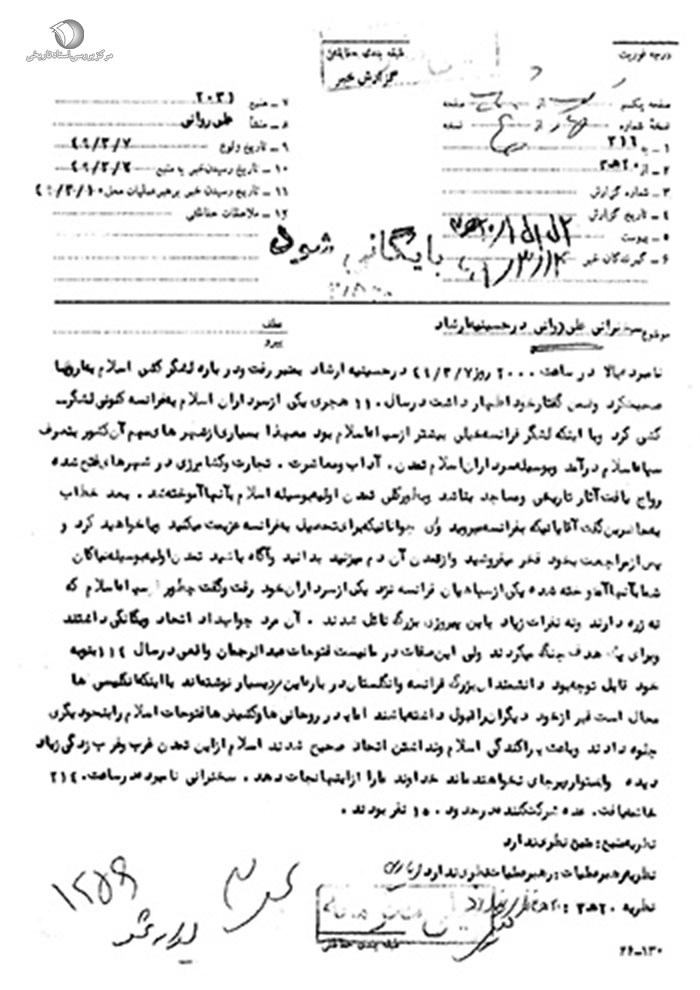 مرکز بررسی اسناد تاریخی
درجه فوریت
طبقه بندی حفاظتی
گزارش خبر
صفحه یکم از صفحه
نسخه شماره از نسخه
۱ ـ به ۳۱۶
۲ ـ از ۲۰ه۳
۳ ـ شماره گزارش
۴ ـ تاریخ گزارش
۵ ـ پیوست
۶ ـ گیرندگان خبر
۷ ـ منبع ۲۰۳۱
۸ ـ منشأ علی روانی
۹ ـ تاریخ وقوع ۴۹/۳/۷
۱۰ ـ تاریخ رسیدن خبر به منبع
۱۱ ـ تاریخ رسیدن خبر برهبر عملیات محل ۴۹/۳/۱۰
۱۲ ـ ملاحظات حفاظتی
بایگانی شود
موضوع سخنرانی علی روانی در حسینیه ارشاد
عطف
پیرو
نامبرده بالا در ساعت ۲۰۰۰ روز ۴۹/۳/۷ در حسینیه ارشاد بمنبر رفت و در باره لشگر کشی اسلام به اروپا
صحبت کرد و ضمن گفتار خود اظهار داشت در سال ۱۱۰ هجری یکی از سرداران اسلام به فرانسه کنونی لشگر ـ
کشی کرد و با اینکه لشگر فرانسه خیلی بیشتر از سپاه اسلام بود معهذا بسیاری از شهرهای مهم آن کشور بتصرف
سپاه اسلام درآمد و بوسیله سرداران اسلام تمدن ، آداب و معاشرت ، تجارت و کشاورزی در شهرهای فتح شده
رواج یافت آثار تاریخی و مساجد بنا شد و بطور کلی تمدن اولیه بوسیله اسلام بآنها آموخته شد . بعد خطاب
به حاضرین گفت آقایانیکه بفرانسه میروید و آن جوانانیکه برای تحصیل به فرانسه عزیمت میکنید و یا خواهید کرد و
پس از مراجعت بخود فخر میفروشید و از تمدن آن دم میزنید بدانید و آگاه باشید تمدن اولیه بوسیله نیاکان
شما بآنها آموخته شده یکی از سپاهیان فرانسه نزد یکی از سرداران خود رفت و گفت چطور این سپاه اسلام که
نه زره دارند و نه نفرات زیاد باین پیروزی بزرگ نائل شدند . آن مرد جواب داد اتحاد و یگانگی داشتند
و برای یک هدف جنگ میکردند ولی این صفات در ما نیست فتوحات عبدالرحمان واقعی در سال ۱۱۴ بنوبه
خود قابل توجه بود دانشمندان بزرگ فرانسه و انگلستان در باره این نبرد بسیار نوشته اند با اینکه انگلیس ها
محال است غیر از خود دیگران را قبول داشته باشند اما پدر روحانی ها و کشیش ها فتوحات اسلام را بنحو دیگری
جلوه دادند و باعث پراکندگی اسلام و نداشتن اتحاد صحیح شدند اسلام از این تمدن غرب و غرب زدگی زیاد
دیده و استوار و برجای نخواهند ماند خداوند ما را از اینها نجات دهد . سخنرانی نامبرده در ساعت ۲۱۴۰
خاتمه یافت . عده شرکت کننده در حدود ۱۵۰ نفر بودند .
نظریه منبع : منبع نظری ندارد
نظریه رهبر عملیات : رهبر عملیات نظری ندارد
نظریه ۲۰ه۳ :
طبقه بندی حفاظتی
۱۲۵۹
۲۶-۱۳۰